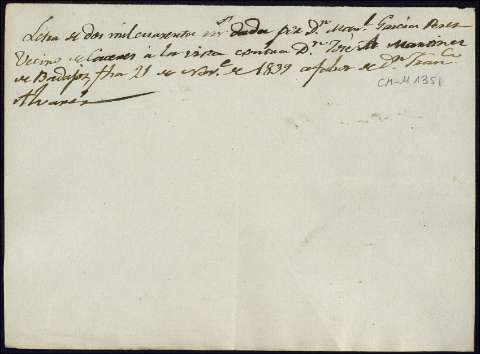 Letra de dos mil cuarenta rs. dada por Dn. Manl. Garcia Perez
Vecino de Caceres á la vista contra Dn. Jose Martinez
de Badajoz fha 21 de Nove. de 1839 a fabor de Dn. Franco.
Alvarez
CM-M 1351